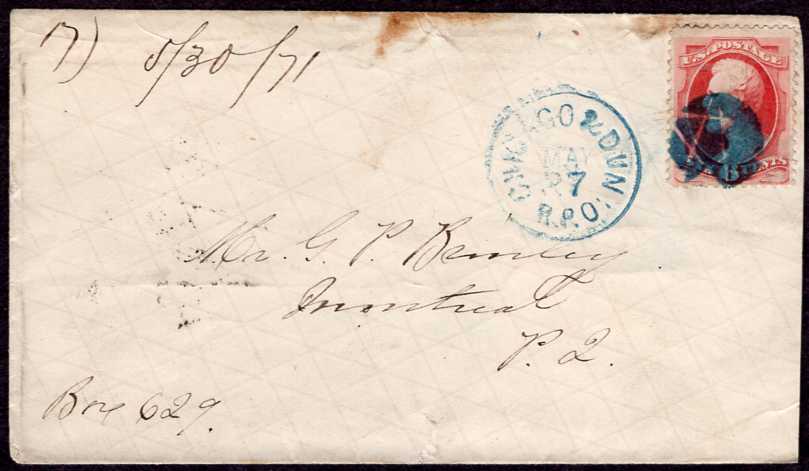 7) 5/30/71
U.S. POSTAGE
CHICAGO & DUN.
MAY
27
R.P.O.
SIX 6 CENTS
Mr. G. P.
Montreal
P. Q.
Box 629.